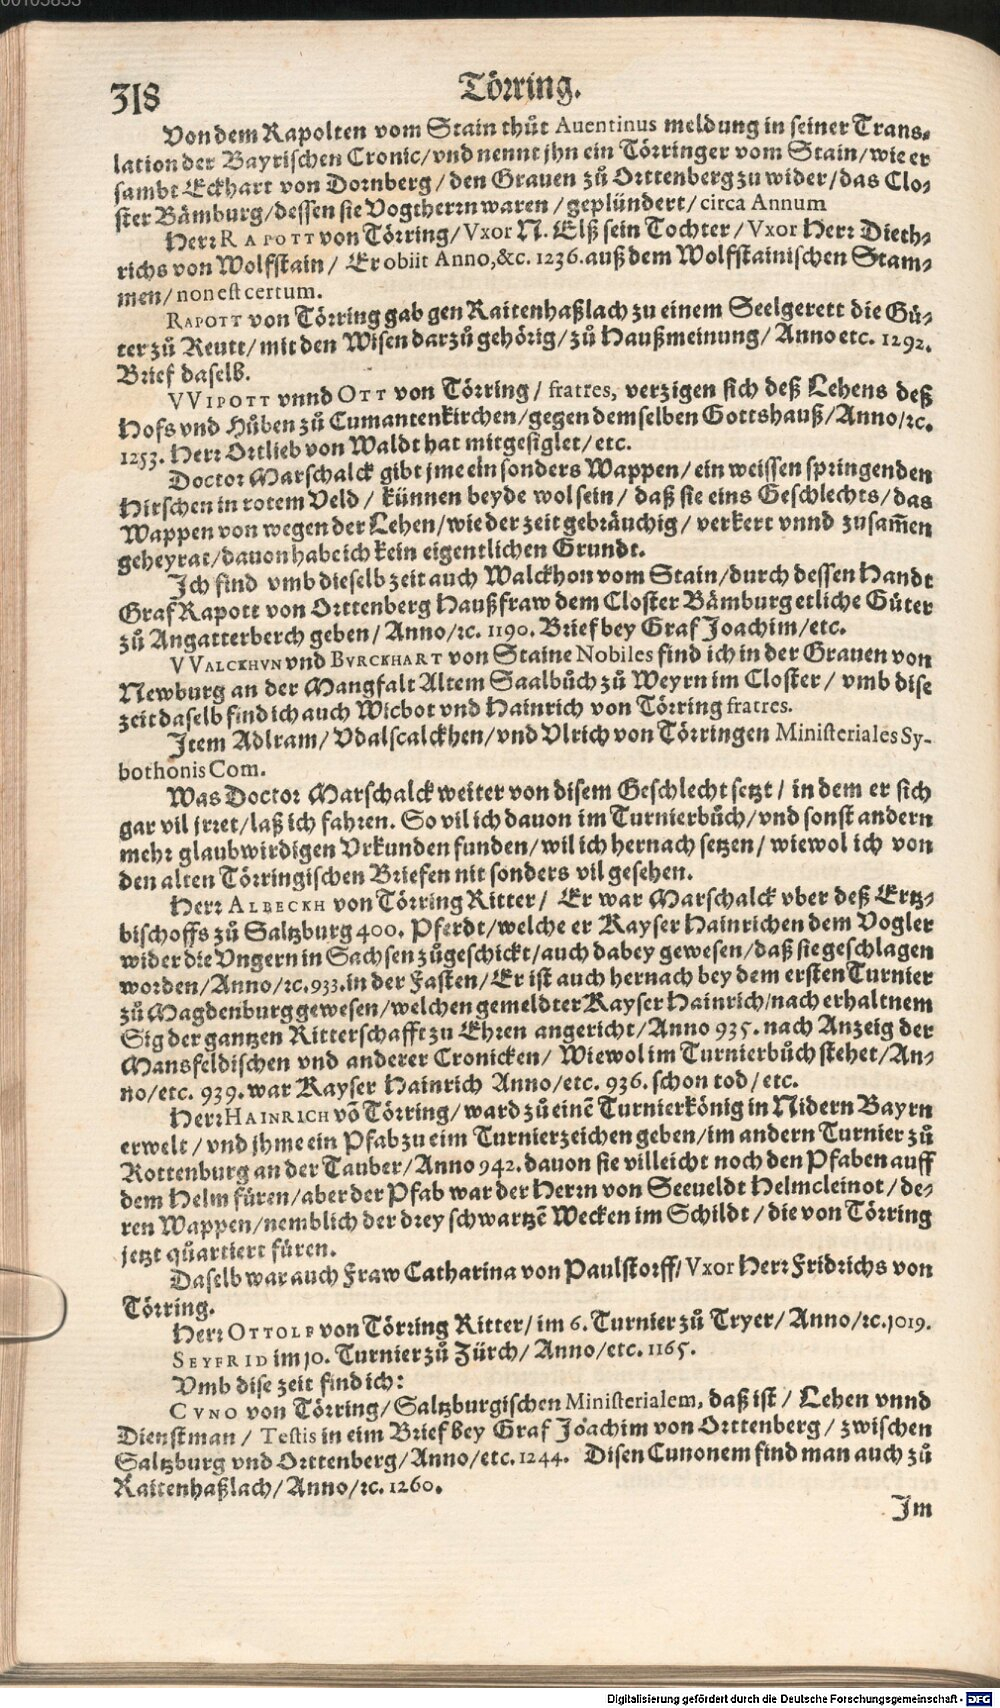 318
Törring.
Von dem Rapolten vom Stain thůt Auentinus meldung in seiner Trans-
lation der Bayrischen Cronic/vnd nennt jhn ein Törringer vom Stain/wie er
sambt Eckhart von Dornberg/den Grauen zů Orttenberg zu wider/das Clo-
ster Bämburg/dessen sie Vogtherrn waren/geplündert/circa Annum
Herr RAPOTT von Törring/Vxor N. Elß sein Tochter/Vxor Herr Dieth-
richs von Wolfstain/ Er obiit Anno,&c. 1236. auß dem Wolfstainischen Stam-
men/non est certum.
RAPOTT von Törring gab gen Raitenhaßlach zu einem Seelgerett die Gü-
ter zů Reutt/mit den Wisen darzů gehörig/zů Haußmeinung/Anno etc. 1292.
Brief daselb.
VVIPOTT vnnd OTT von Törring/fratres, verzigen sich deß Lehens deß
Hofs vnd Hůben zů Cumantenkirchen/gegen demselben Gottshauß/Anno/ꝛc.
1253. Herr Ortlieb von Waldt hat mitgesiglet/etc.
Doctor Marschalck gibt jme ein sonders Wappen/ein weissen springenden
Hirschen in rotem Veld/künnen beyde wol sein/daß sie eins Geschlechts/das
Wappen von wegen der Lehen/wie der zeit gebräuchig/verkert vnnd zusam̃en
geheyrat/dauon habe ich kein eigentlichen Grundt.
Ich find vmb dieselb zeit auch Walckhon vom Stain/durch dessen Handt
Graf Rapott von Orttenberg Haußfraw dem Closter Bämburg etliche Güter
zů Angatterberch geben/Anno/ꝛc. 1190. Brief bey Graf Joachim/etc.
VVALCKHVN vnd BVRCKHART von Staine Nobiles find ich in der Grauen von
Newburg an der Mangfalt Altem Saalbůch zů Weyrn im Closter/vmb dise
zeit daselb find ich auch Wicbot vnd Hainrich von Törring fratres.
Item Adlram/Vdalscalckhen/vnd Vlrich von Törringen Ministeriales Sy-
bothonis Com.
Was Doctor Marschalck weiter von disem Geschlecht setzt/in dem er sich
gar vil jrret/laß ich fahren. So vil ich dauon im Turnierbůch/vnd sonst andern
mehr glaubwirdigen Vrkunden funden/wil ich hernach setzen/wiewol ich von
den alten Törringischen Briefen nit sonders vil gesehen.
Herr ALBECKH von Törring Ritter/ Er war Marschalck vber deß Ertz-
bischoffs zů Saltzburg 400. Pferdt/welche er Kayser Hainrichen dem Vogler
wider die Vngern in Sachsen zůgeschickt/auch dabey gewesen/daß sie geschlagen
worden/Anno/ꝛc. 933. in der Fasten/Er ist auch hernach bey dem ersten Turnier
zů Magdenburg gewesen/welchen gemeldter Kayser Hainrich/nach erhaltnem
Sig der gantzen Ritterschafft zu Ehren angericht/Anno 935. nach Anzeig der
Mansfeldischen vnd anderer Cronicken/ Wiewol im Turnierbůch stehet/An-
no/etc. 939. war Kayser Hainrich Anno/etc. 936. schon tod/etc.
Herr HAINRICH võ Törring/ward zů einẽ Turnierkönig in Nidern Bayrn
erwelt/vnd jhme ein Pfab zu eim Turnierzeichen geben/im andern Turnier zů
Rottenburg an der Tauber/Anno 942. dauon sie villeicht noch den Pfaben auff
dem Helm füren/aber der Pfab war der Herrn von Seeueldt Helmcleinot/de-
ren Wappen/nemblich der drey schwartzẽ Wecken im Schildt/die von Törring
jetzt quartiert füren.
Daselb war auch Fraw Catharina von Paulstorff/Vxor Herr Fridrichs von
Törring.
Herr OTTOLF von Törring Ritter/im 6. Turnier zů Tryer/Anno/ꝛc. 1019.
SEYFRID im 10. Turnier zů Zürch/Anno/etc. 1165.
Vmb dise zeit find ich:
CVNO von Törring/Saltzburgischen Ministerialem, daß ist/ Lehen vnnd
Dienstman/Testis in eim Brief bey Graf Joachim von Orttenberg/zwischen
Saltzburg vnd Orttenberg/Anno/etc. 1244. Disen Cunonem find man auch zů
Raitenhaßlach/Anno/ꝛc. 1260.
Im
Digitalisierung gefördert durch die Deutsche Forschungsgemeinschaft - DFG